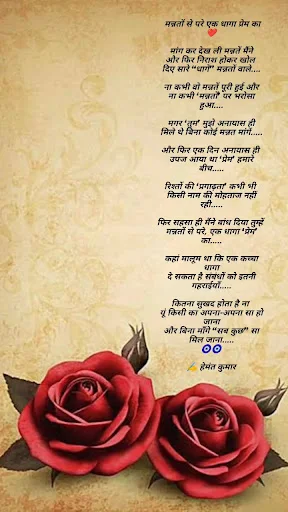 मन्नतों से परे एक धागा प्रेम का
❤️
मांग कर देख ली मन्नतें मैंने
और फिर निराश होकर खोल
दिए सारे “धागे” मन्नतों वाले....
ना कभी वो मन्नतें पूरी हुई और
ना कभी ‘मन्नतों’ पर भरोसा
हुआ....
मगर ‘तुम’ मुझे अनायास ही
मिले थे बिना कोई मन्नत मांगे.....
और फिर एक दिन अनायास ही
उपज आया था ‘प्रेम’ हमारे
बीच.....
रिश्तों की ‘प्रगाढ़ता’ कभी भी
किसी नाम की मोहताज नहीं
रही.....
फिर सहसा ही मैंने बांध दिया तुम्हें
मन्नतों से परे, एक धागा ‘प्रेम’
का.....
कहां मालूम था कि एक कच्चा
धागा
दे सकता है संबंधों को इतनी
गहराईयाँ.....
कितना सुखद होता है ना
यूं किसी का अपना-अपना सा हो
जाना
और बिना माँगे “सब कुछ” सा
मिल जाना.....
🧿🧿
✍️ हेमंत कुमार